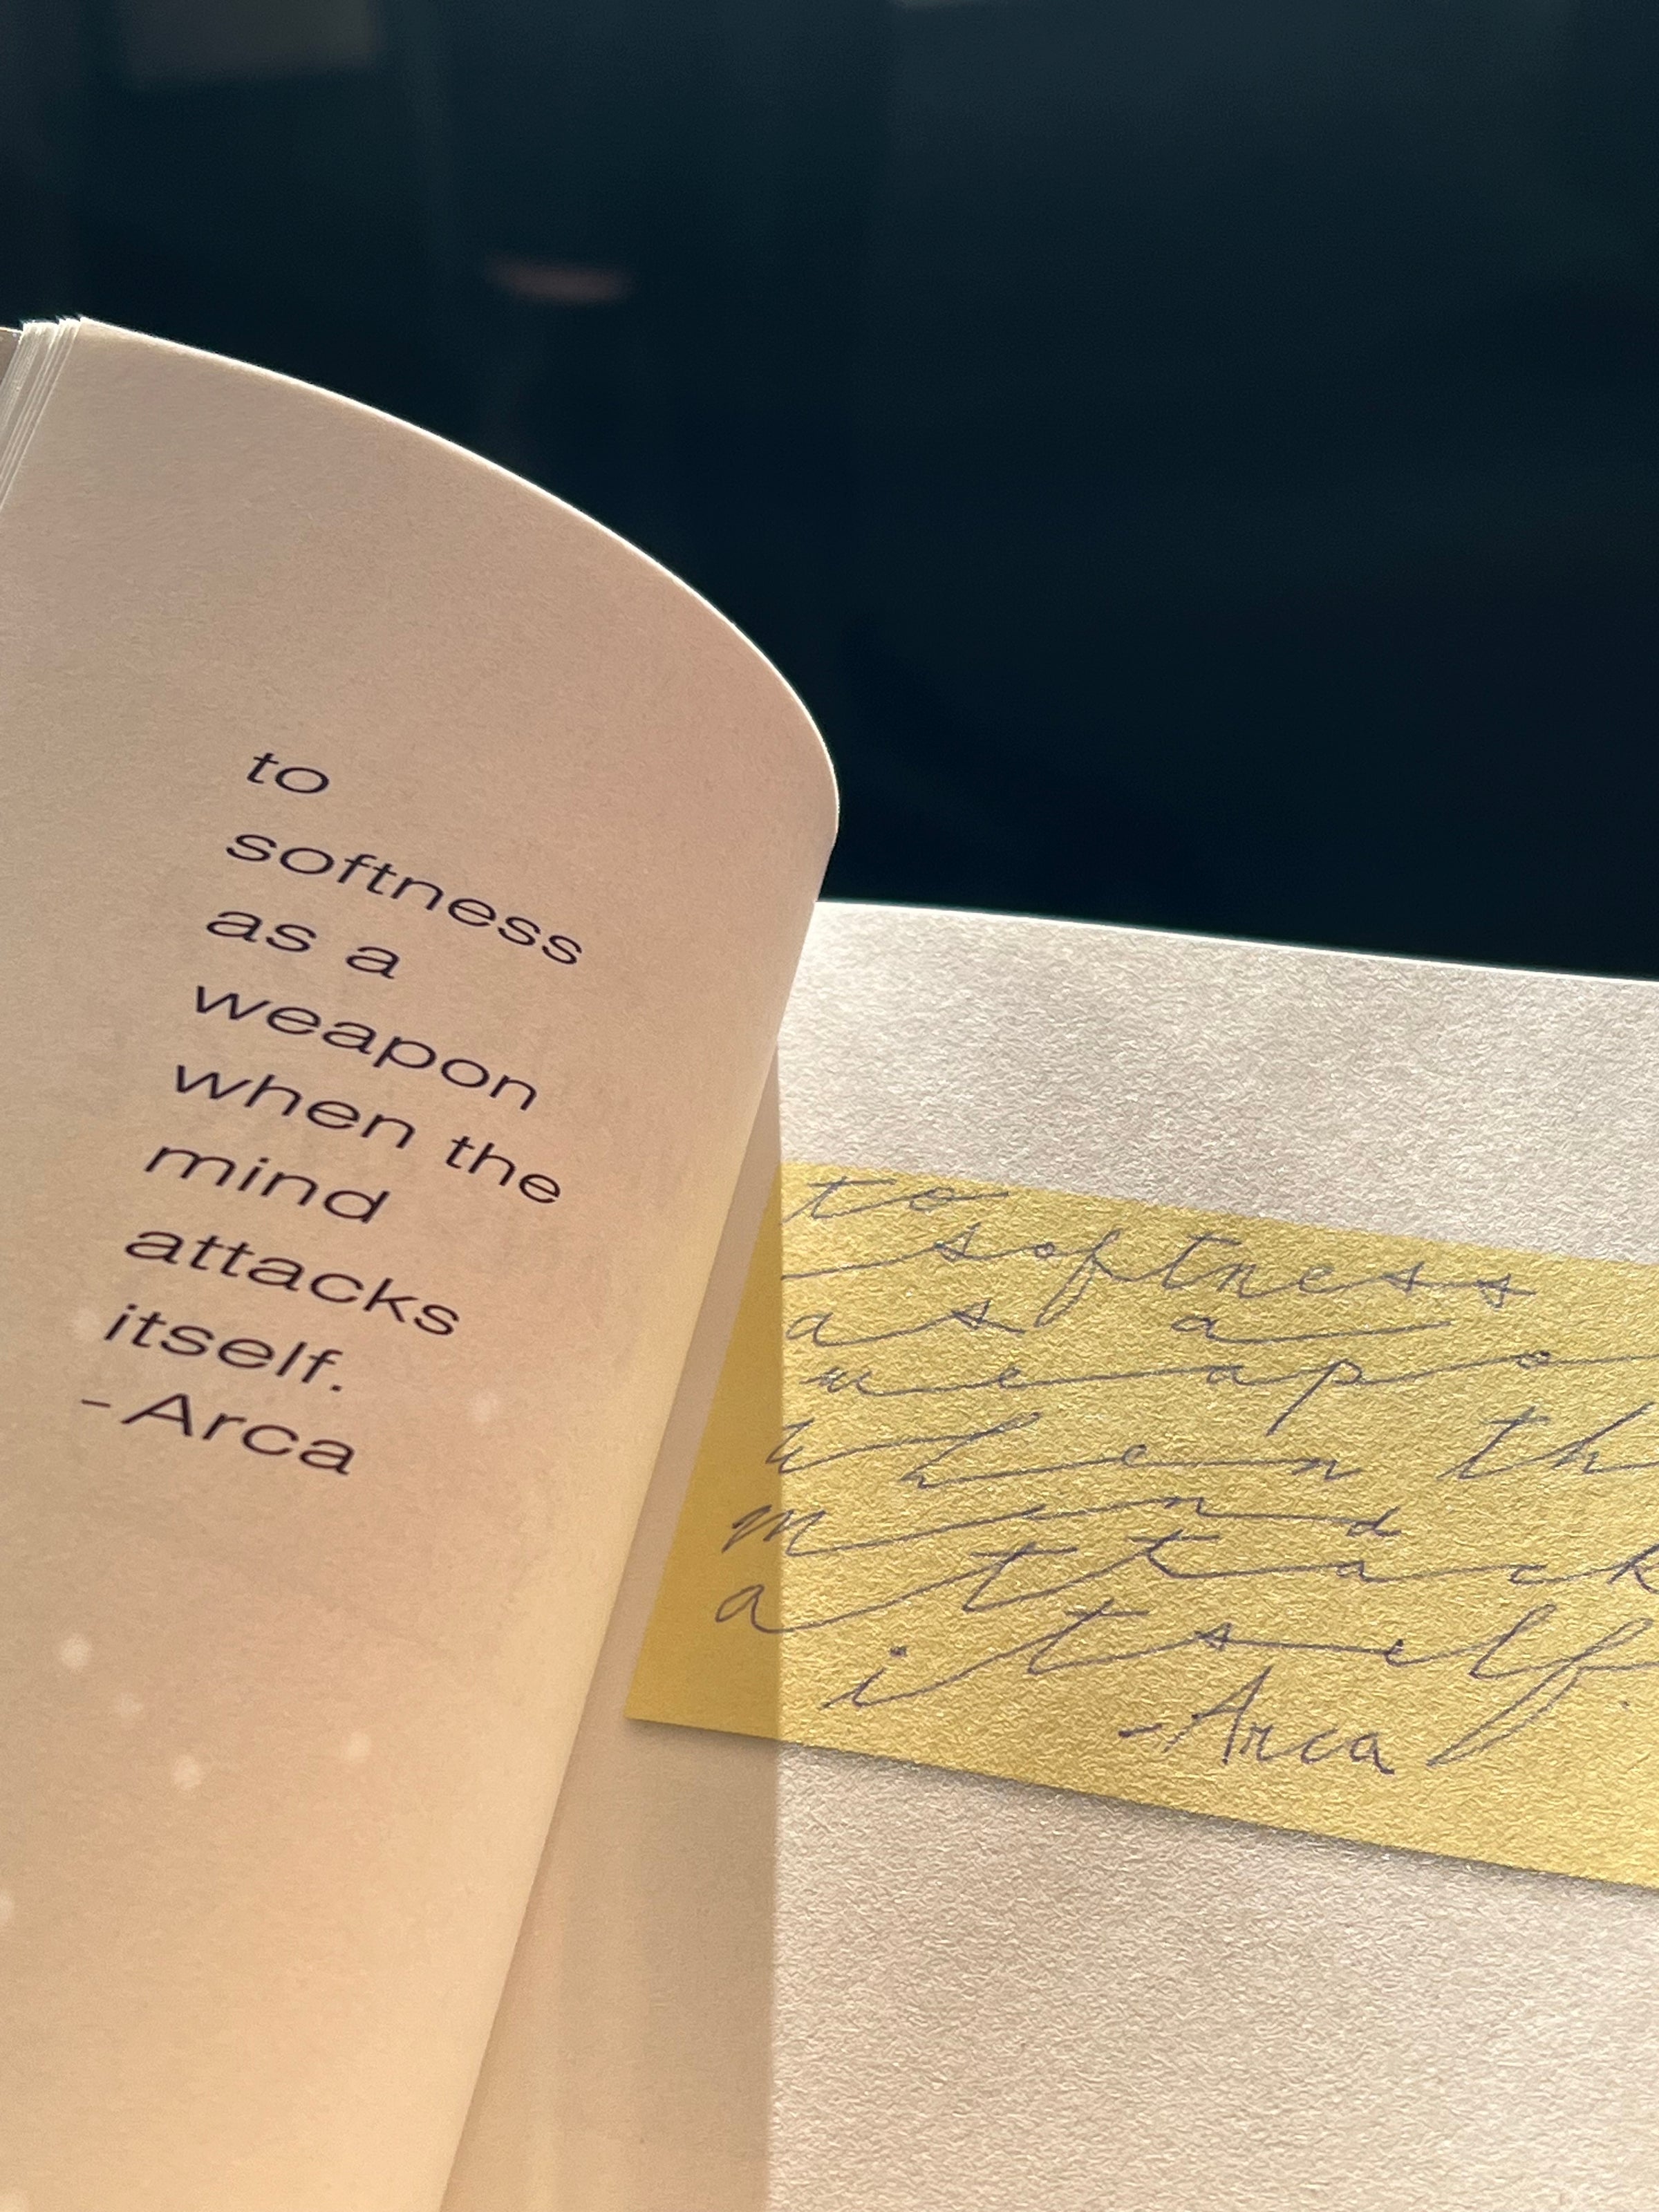 to
softness
as a
weapon
when the
mind
attacks
itself.
- Arca
to
softness
as a
weapo
when th
mind
attack
itself.
- Arca